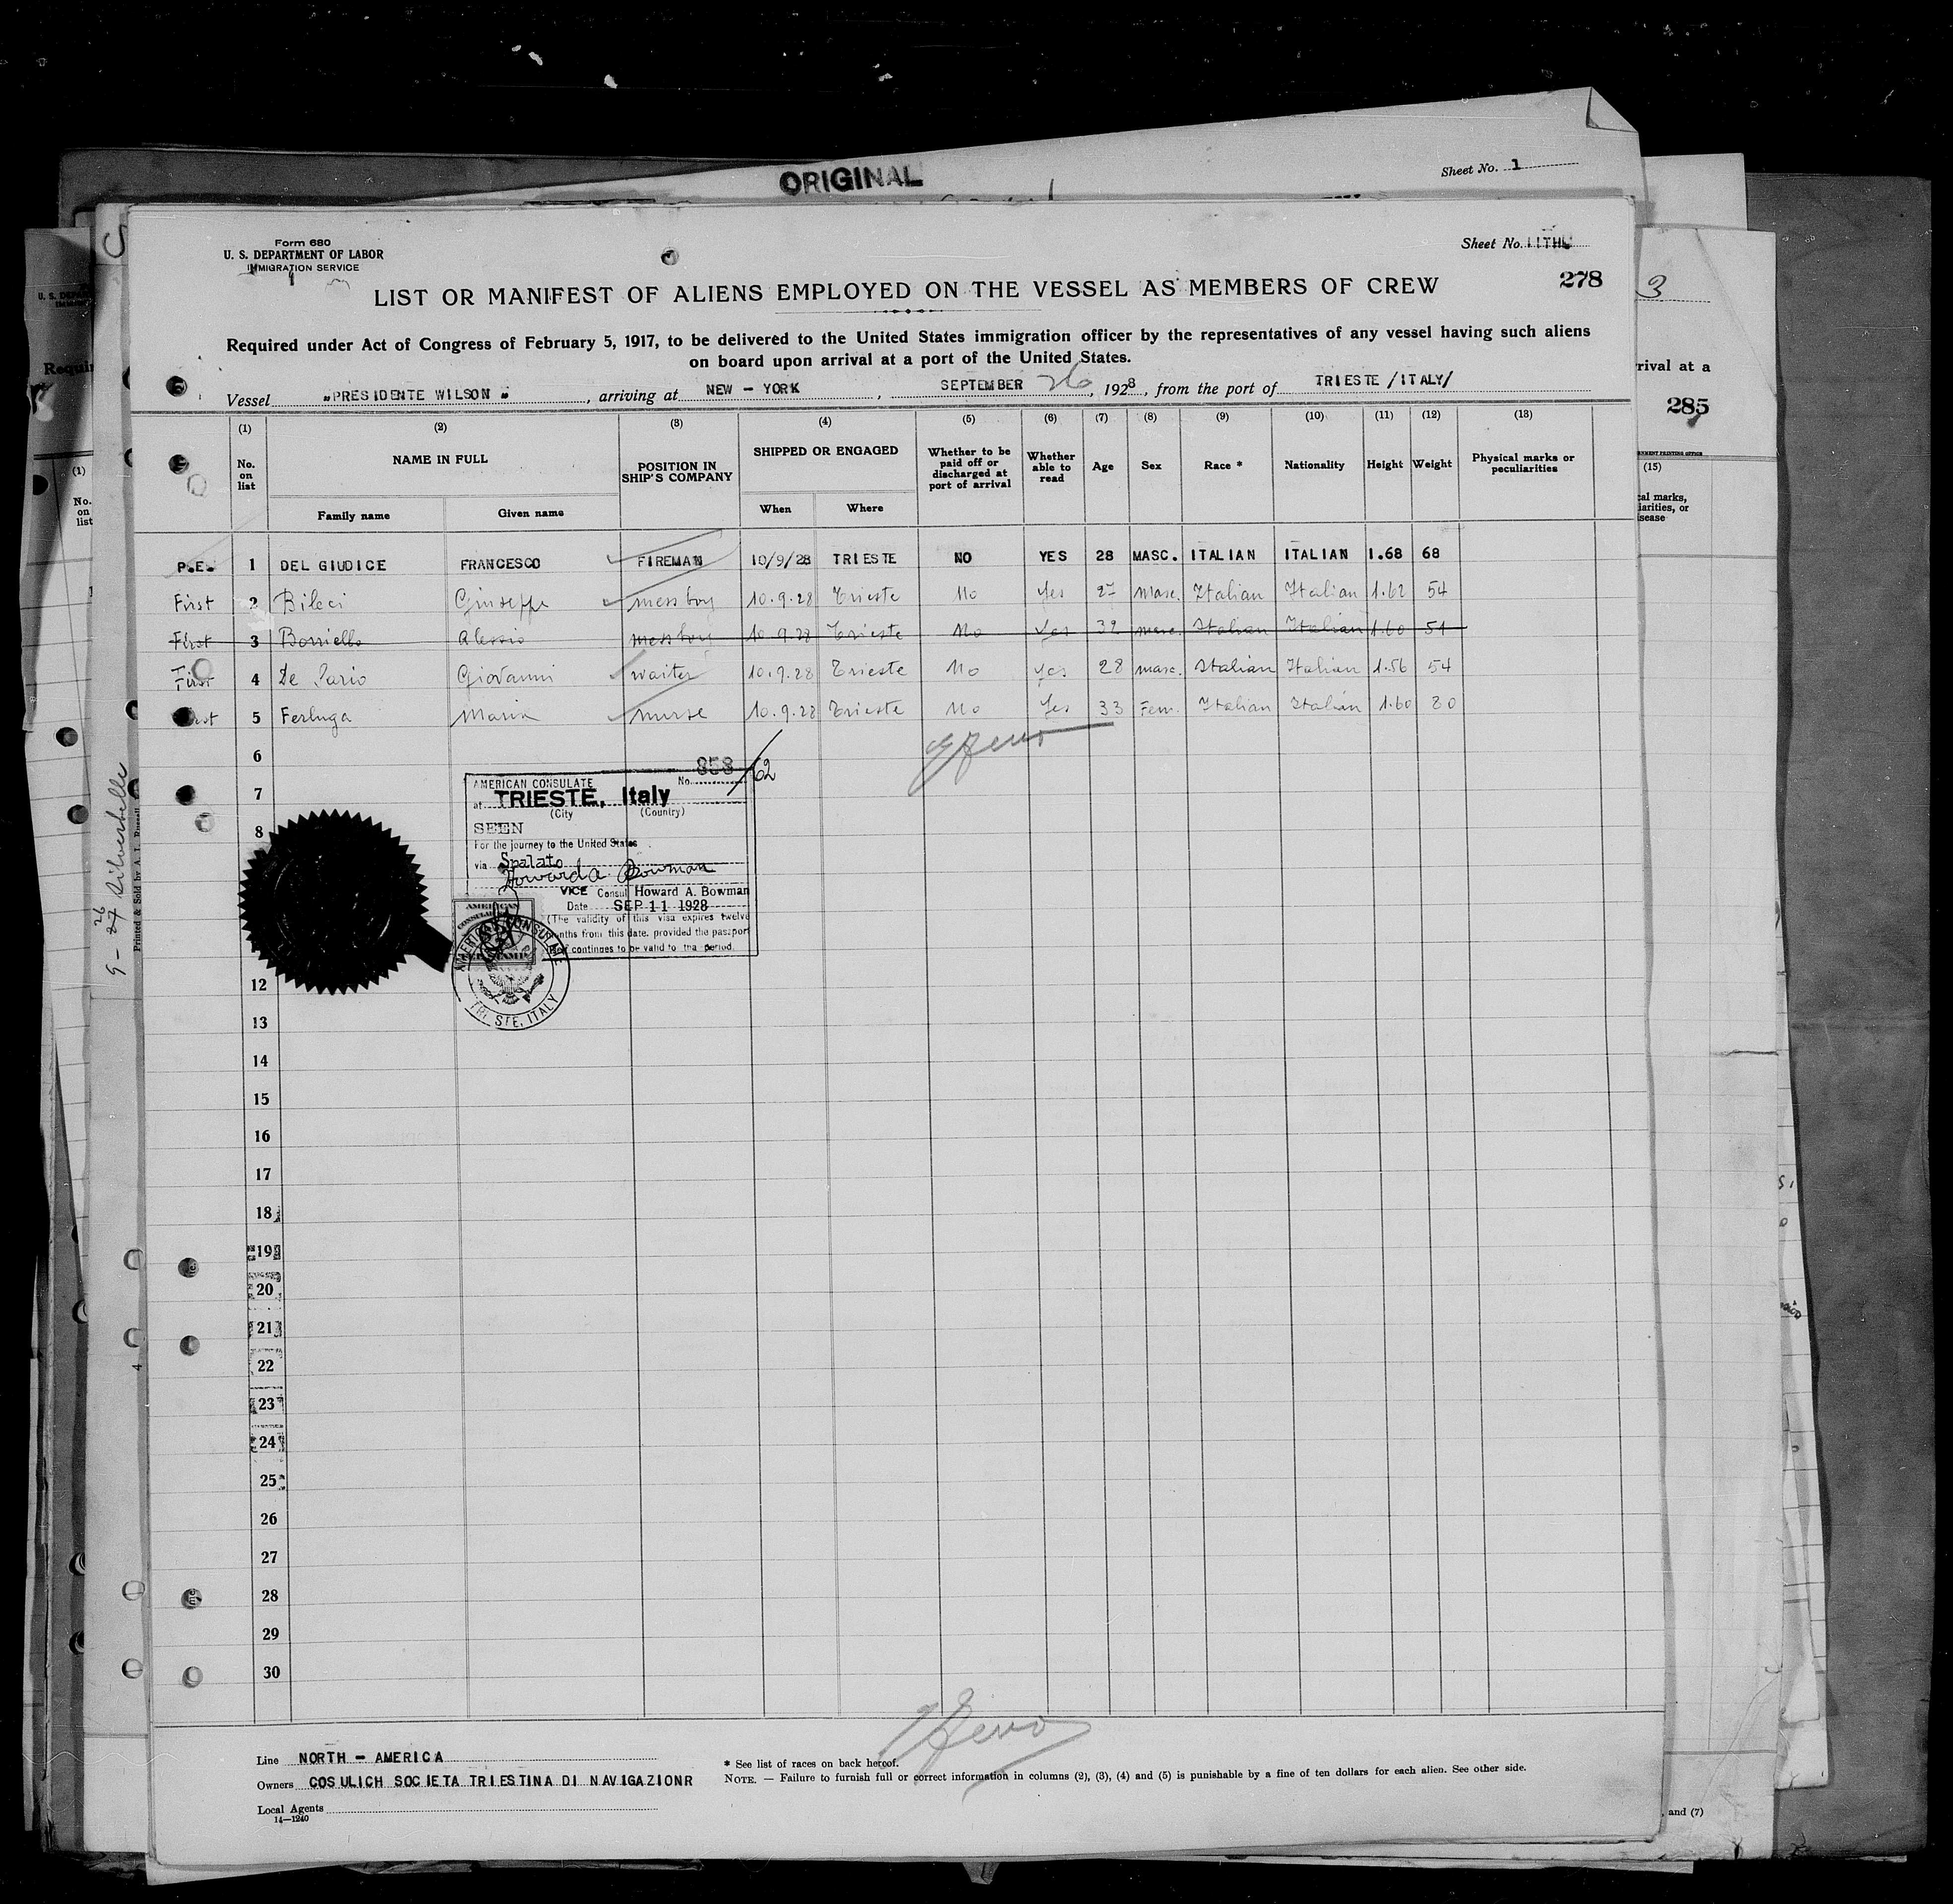 ORIGINAL
Sheet No. 1
Form 680
U. S. DEPARTMENT OF LABOR
IMMIGRATION SERVICE
Sheet No. 11TH
278
LIST OR MANIFEST OF ALIENS EMPLOYED ON THE VESSEL AS MEMBERS OF CREW
Required under Act of Congress of February 5, 1917, to be delivered to the United States immigration officer by the representatives of any vessel having such aliens
on board upon arrival at a port of the United States.
Vessel "PRESIDENTE WILSON", arriving at NEW - YORK, SEPTEMBER 26, 1928, from the port of TRIESTE /ITALY/
(1) (2) (3) (4) (5) (6) (7) (8) (9) (10) (11) (12) (13)
No. on list NAME IN FULL POSITION IN SHIP'S COMPANY SHIPPED OR ENGAGED Whether to be paid off or discharged at port of arrival Whether able to read Age Sex Race * Nationality Height Weight Physical marks or peculiarities
Family name Given name When Where
P.E. 1 DEL GIUDICE FRANCESCO FIREMAN 10/9/28 TRIESTE NO YES 28 MASC. ITALIAN ITALIAN 1.68 68
First 2 Bileci Giuseppe messboy 10.9.28 Trieste No Yes 27 Masc. Italian Italian 1.62 54
First 3 Borriello Alessio messboy 10.9.28 Trieste No Yes 32 masc. Italian Italian 1.60 54
First 4 De Pario Giovanni waiter 10.9.28 Trieste No Yes 28 masc. Italian Italian 1.56 54
First 5 Ferluga Maria nurse 10.9.28 Trieste No Yes 33 Fem. Italian Italian 1.60 80
6
7
8
12
13
14
15
16
17
18
19
20
21
22
23
24
25
26
27
28
29
30
AMERICAN CONSULATE No. 858/62
at TRIESTE, Italy
(City (Country)
SEEN
For the journey to the United States
via Spalato
Howard A. Bowman
VICE Consul Howard A. Bowman
Date SEP 11 1928
(The validity of this visa expires twelve
months from this date, provided the passport
itself continues to be valid to tha period.
AMERICAN CONSULATE
TRIESTE, ITALY
Line NORTH - AMERICA
Owners COSULICH SOCIETA TRIESTINA DI NAVIGAZIONR
Local Agents
14—1240
* See list of races on back hereof.
NOTE. — Failure to furnish full or correct information in columns (2), (3), (4) and (5) is punishable by a fine of ten dollars for each alien. See other side.
Printed & Sold by A. I. Russell
3
rival at a
285
(15)
, and (7)